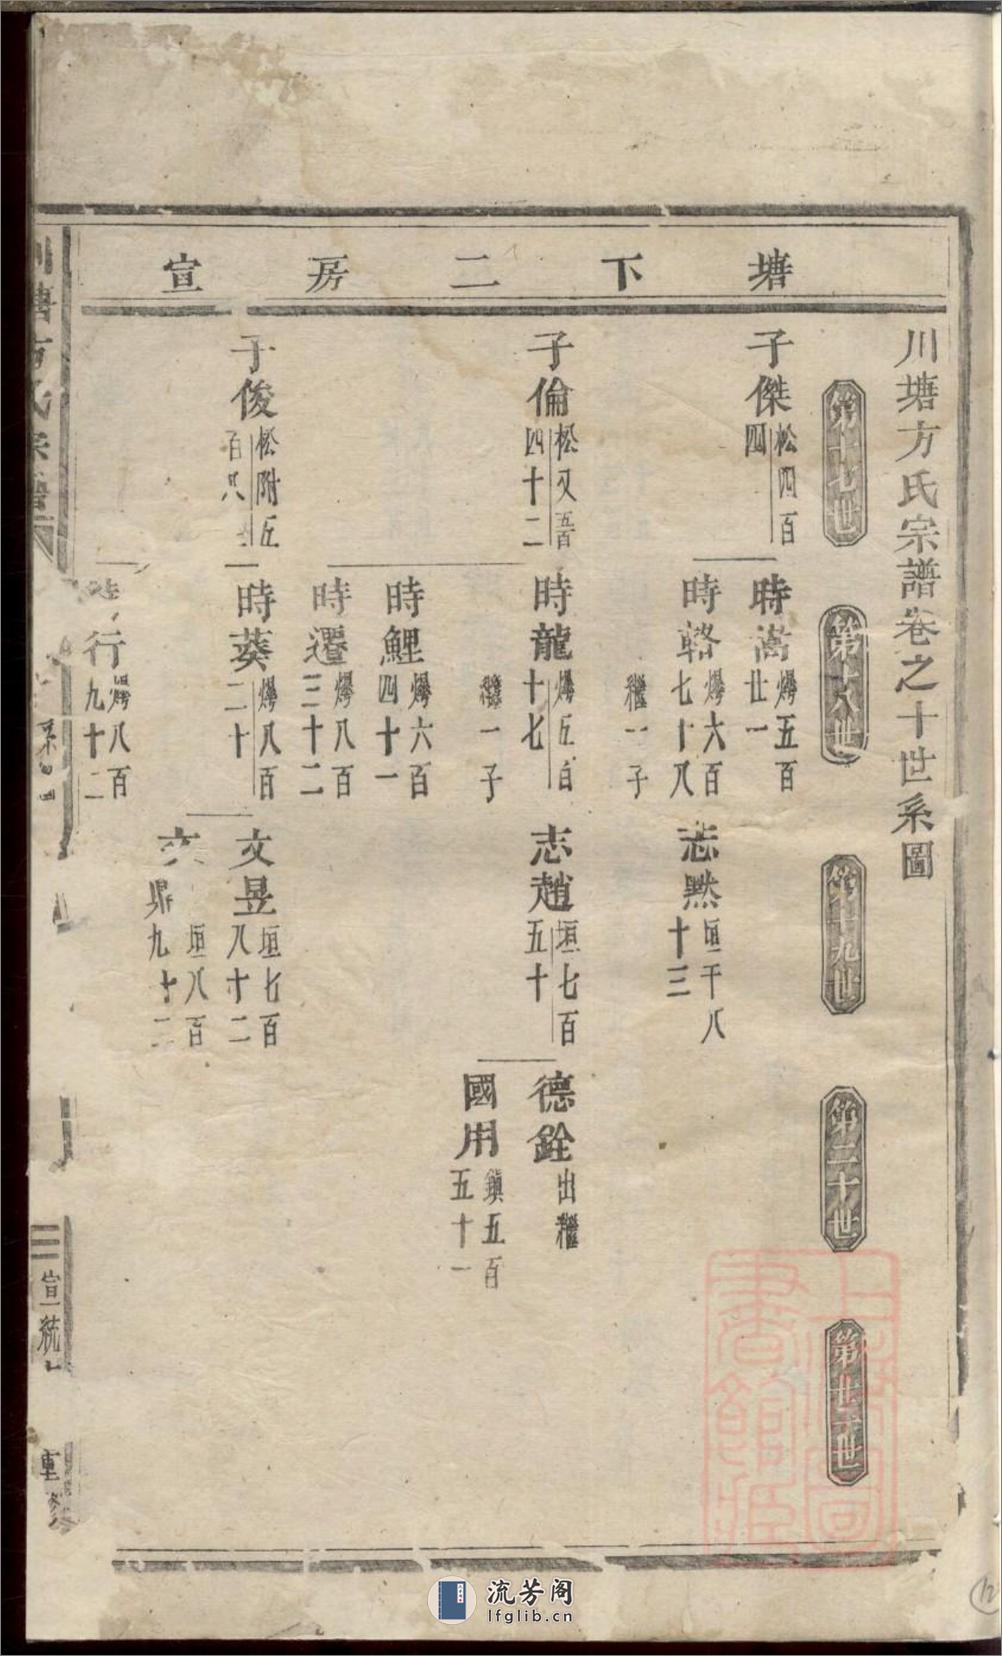 川塘方氏宗譜卷之十世系圖
塘下二房宣
第十七世
第十八世
第十九世
第二十世
第廿一世
子傑
松四百
四
子倫
松又五百
四十二
子俊
松附五
百八
時嵩
爆五百
廿一
時輅
爆六百
七十八
繼一子
時龍
爆五百
十七
繼一子
時鯉
爆六百
四十一
時遷
爆八百
三十二
時葵
爆八百
二十
時行
爆八百
九十二
志黙
垣千八
十三
志趙
垣七百
五十
文昱
垣七百
八十二
文鼎
垣八百
九十二
德銓
出繼
國用
鎮五百
五十一
川塘方氏宗譜
宣統
重修
上海圖書館藏
流芳阁
lfglib.cn